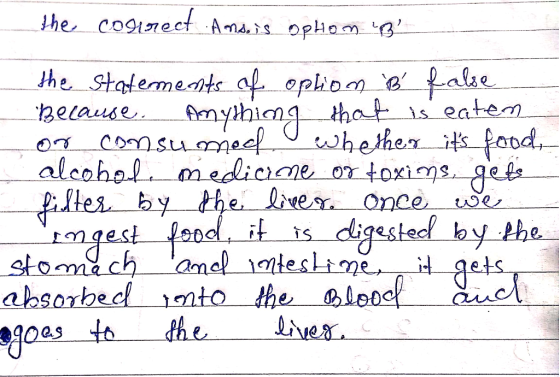 the correct Ans. is option 'B'
the Statements of option 'B' false
Because. Anything that is eaten
or consumed whether it's food,
alcohol. medicine or toxins, gets
filter by the liver. once we
ingest food, it is digested by the
stomach and intestine, it gets
absorbed into the Blood and
goes to the liver.